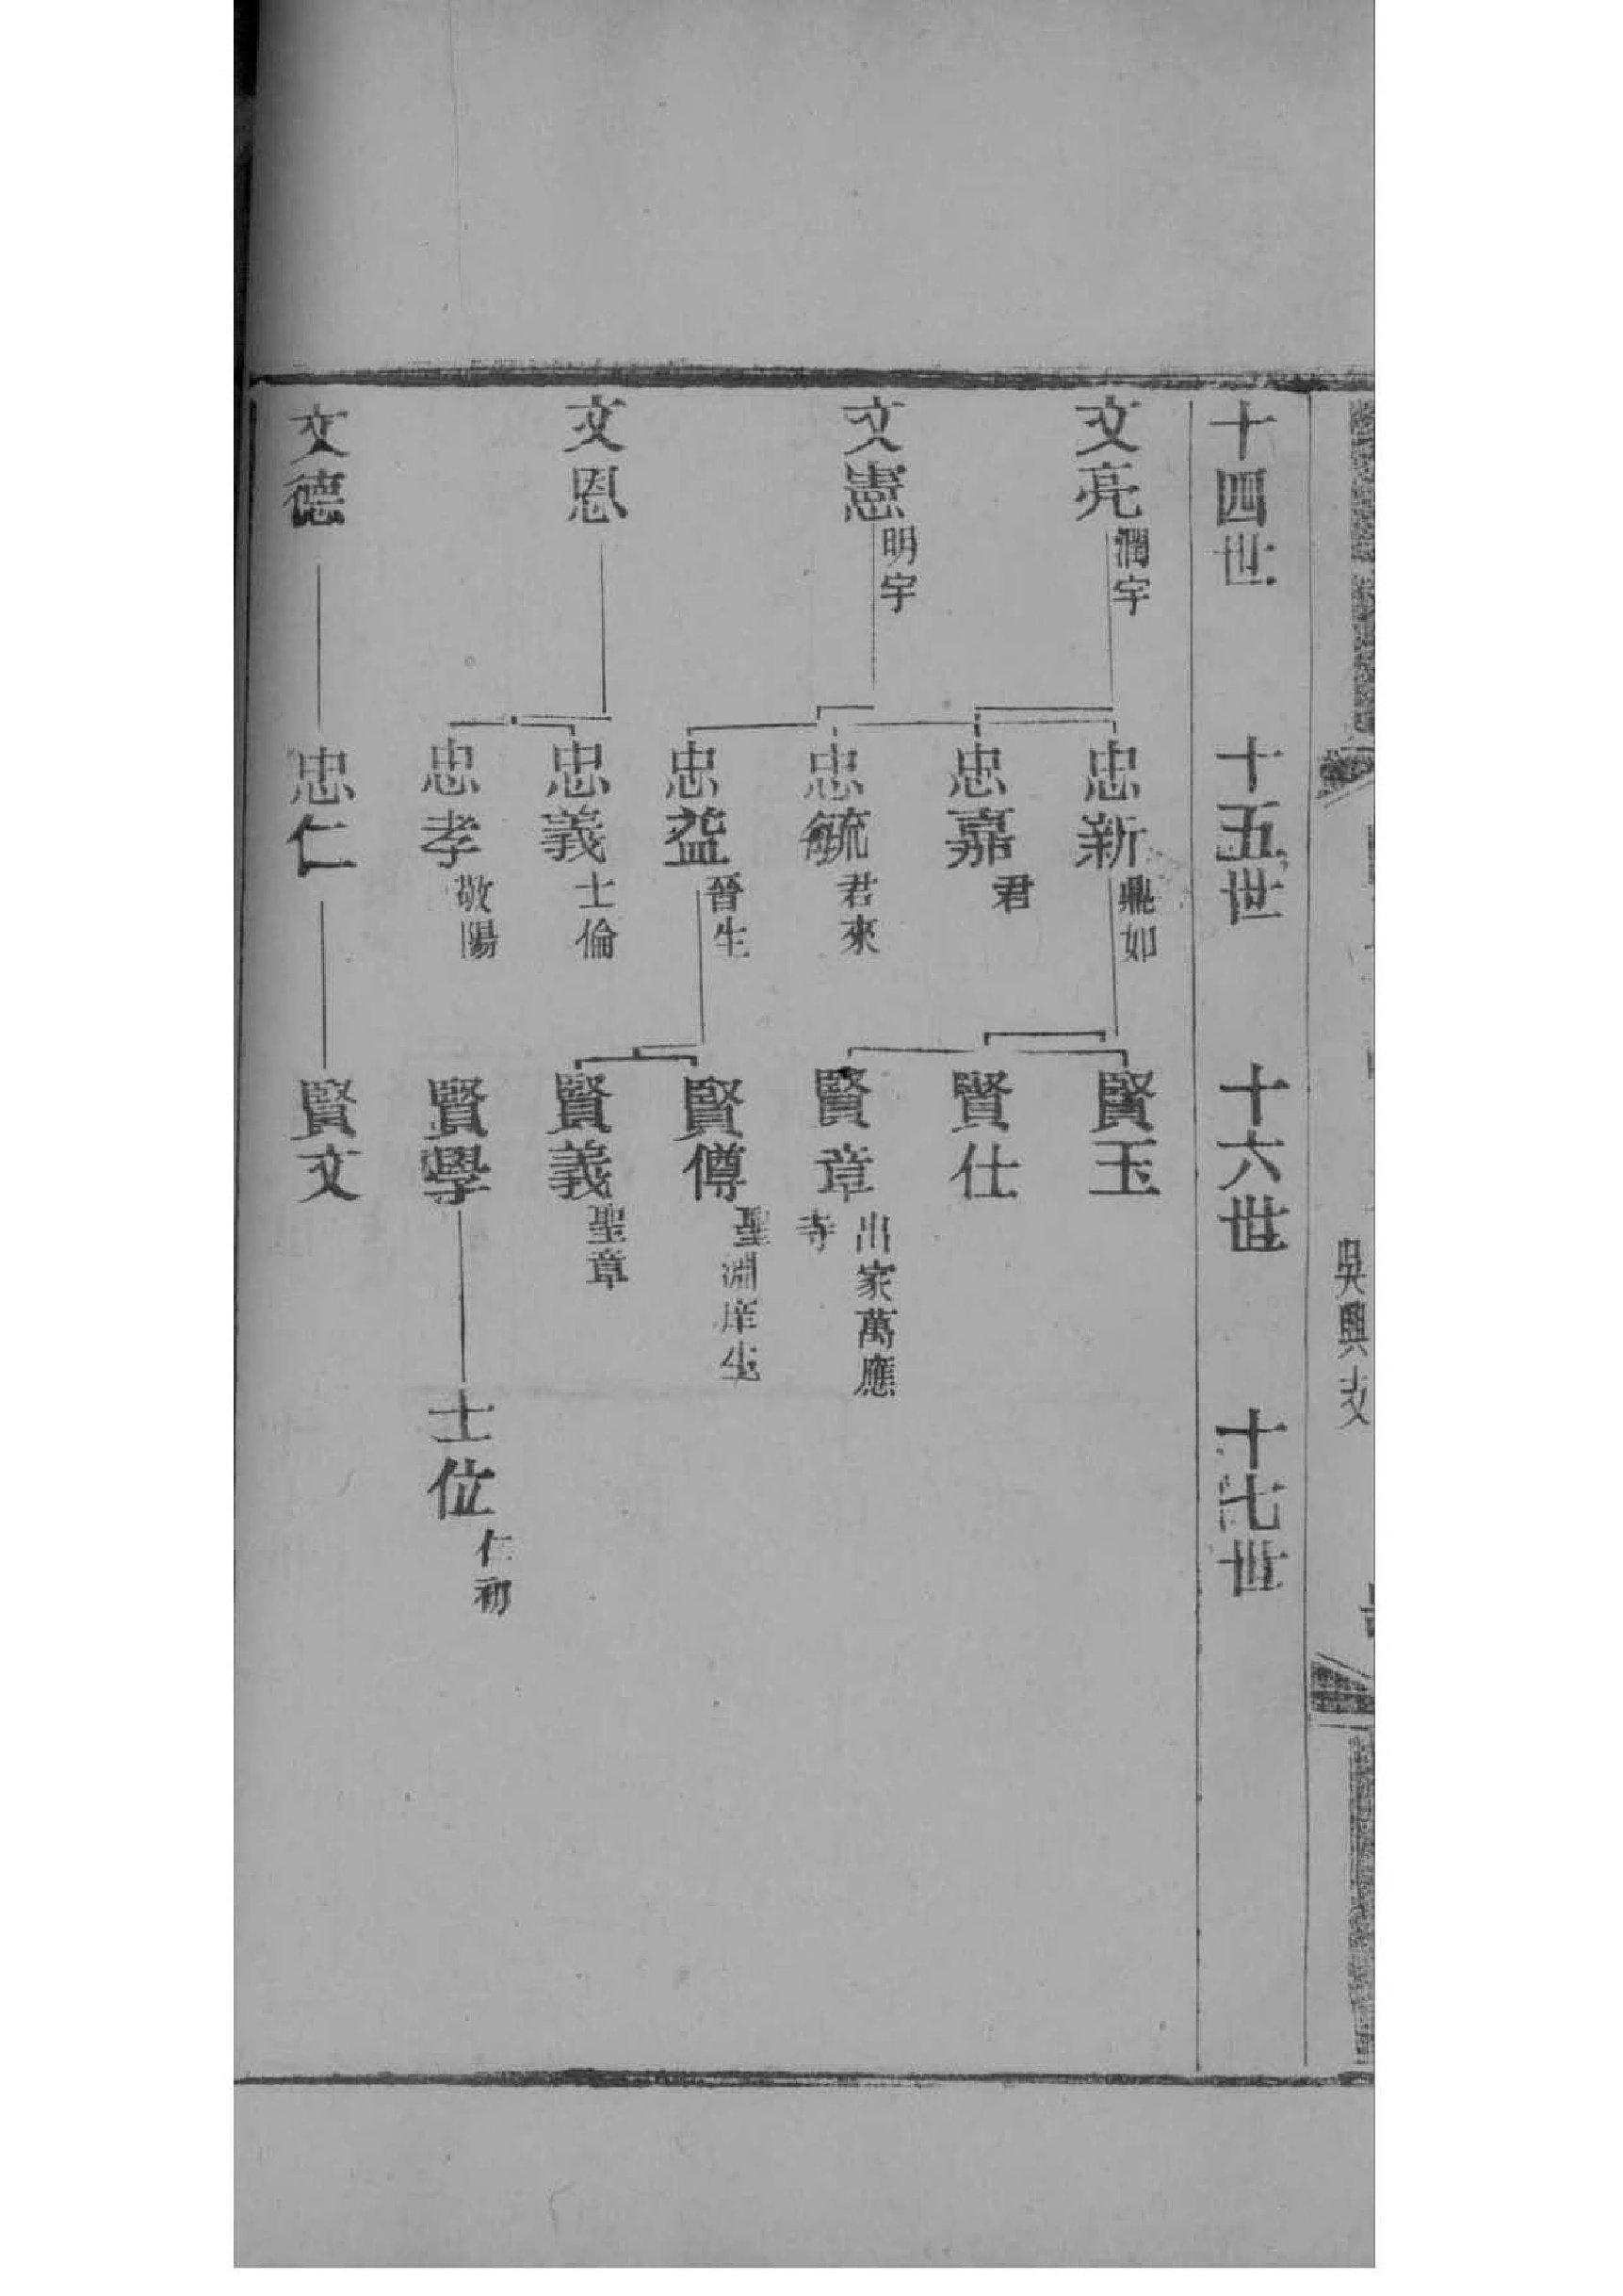 吳興支
十四世
十五世
十六世
十七世
文亮
潤宇
文憲
明宇
文恩
文德
忠新
鼎如
忠嘉
君
忠毓
君來
忠益
晉生
忠義
士倫
忠孝
敬陽
忠仁
賢玉
賢仕
賢章
出家萬應
寺
賢傅
聖淵庠生
賢義
聖章
賢學
賢文
士位
仁初